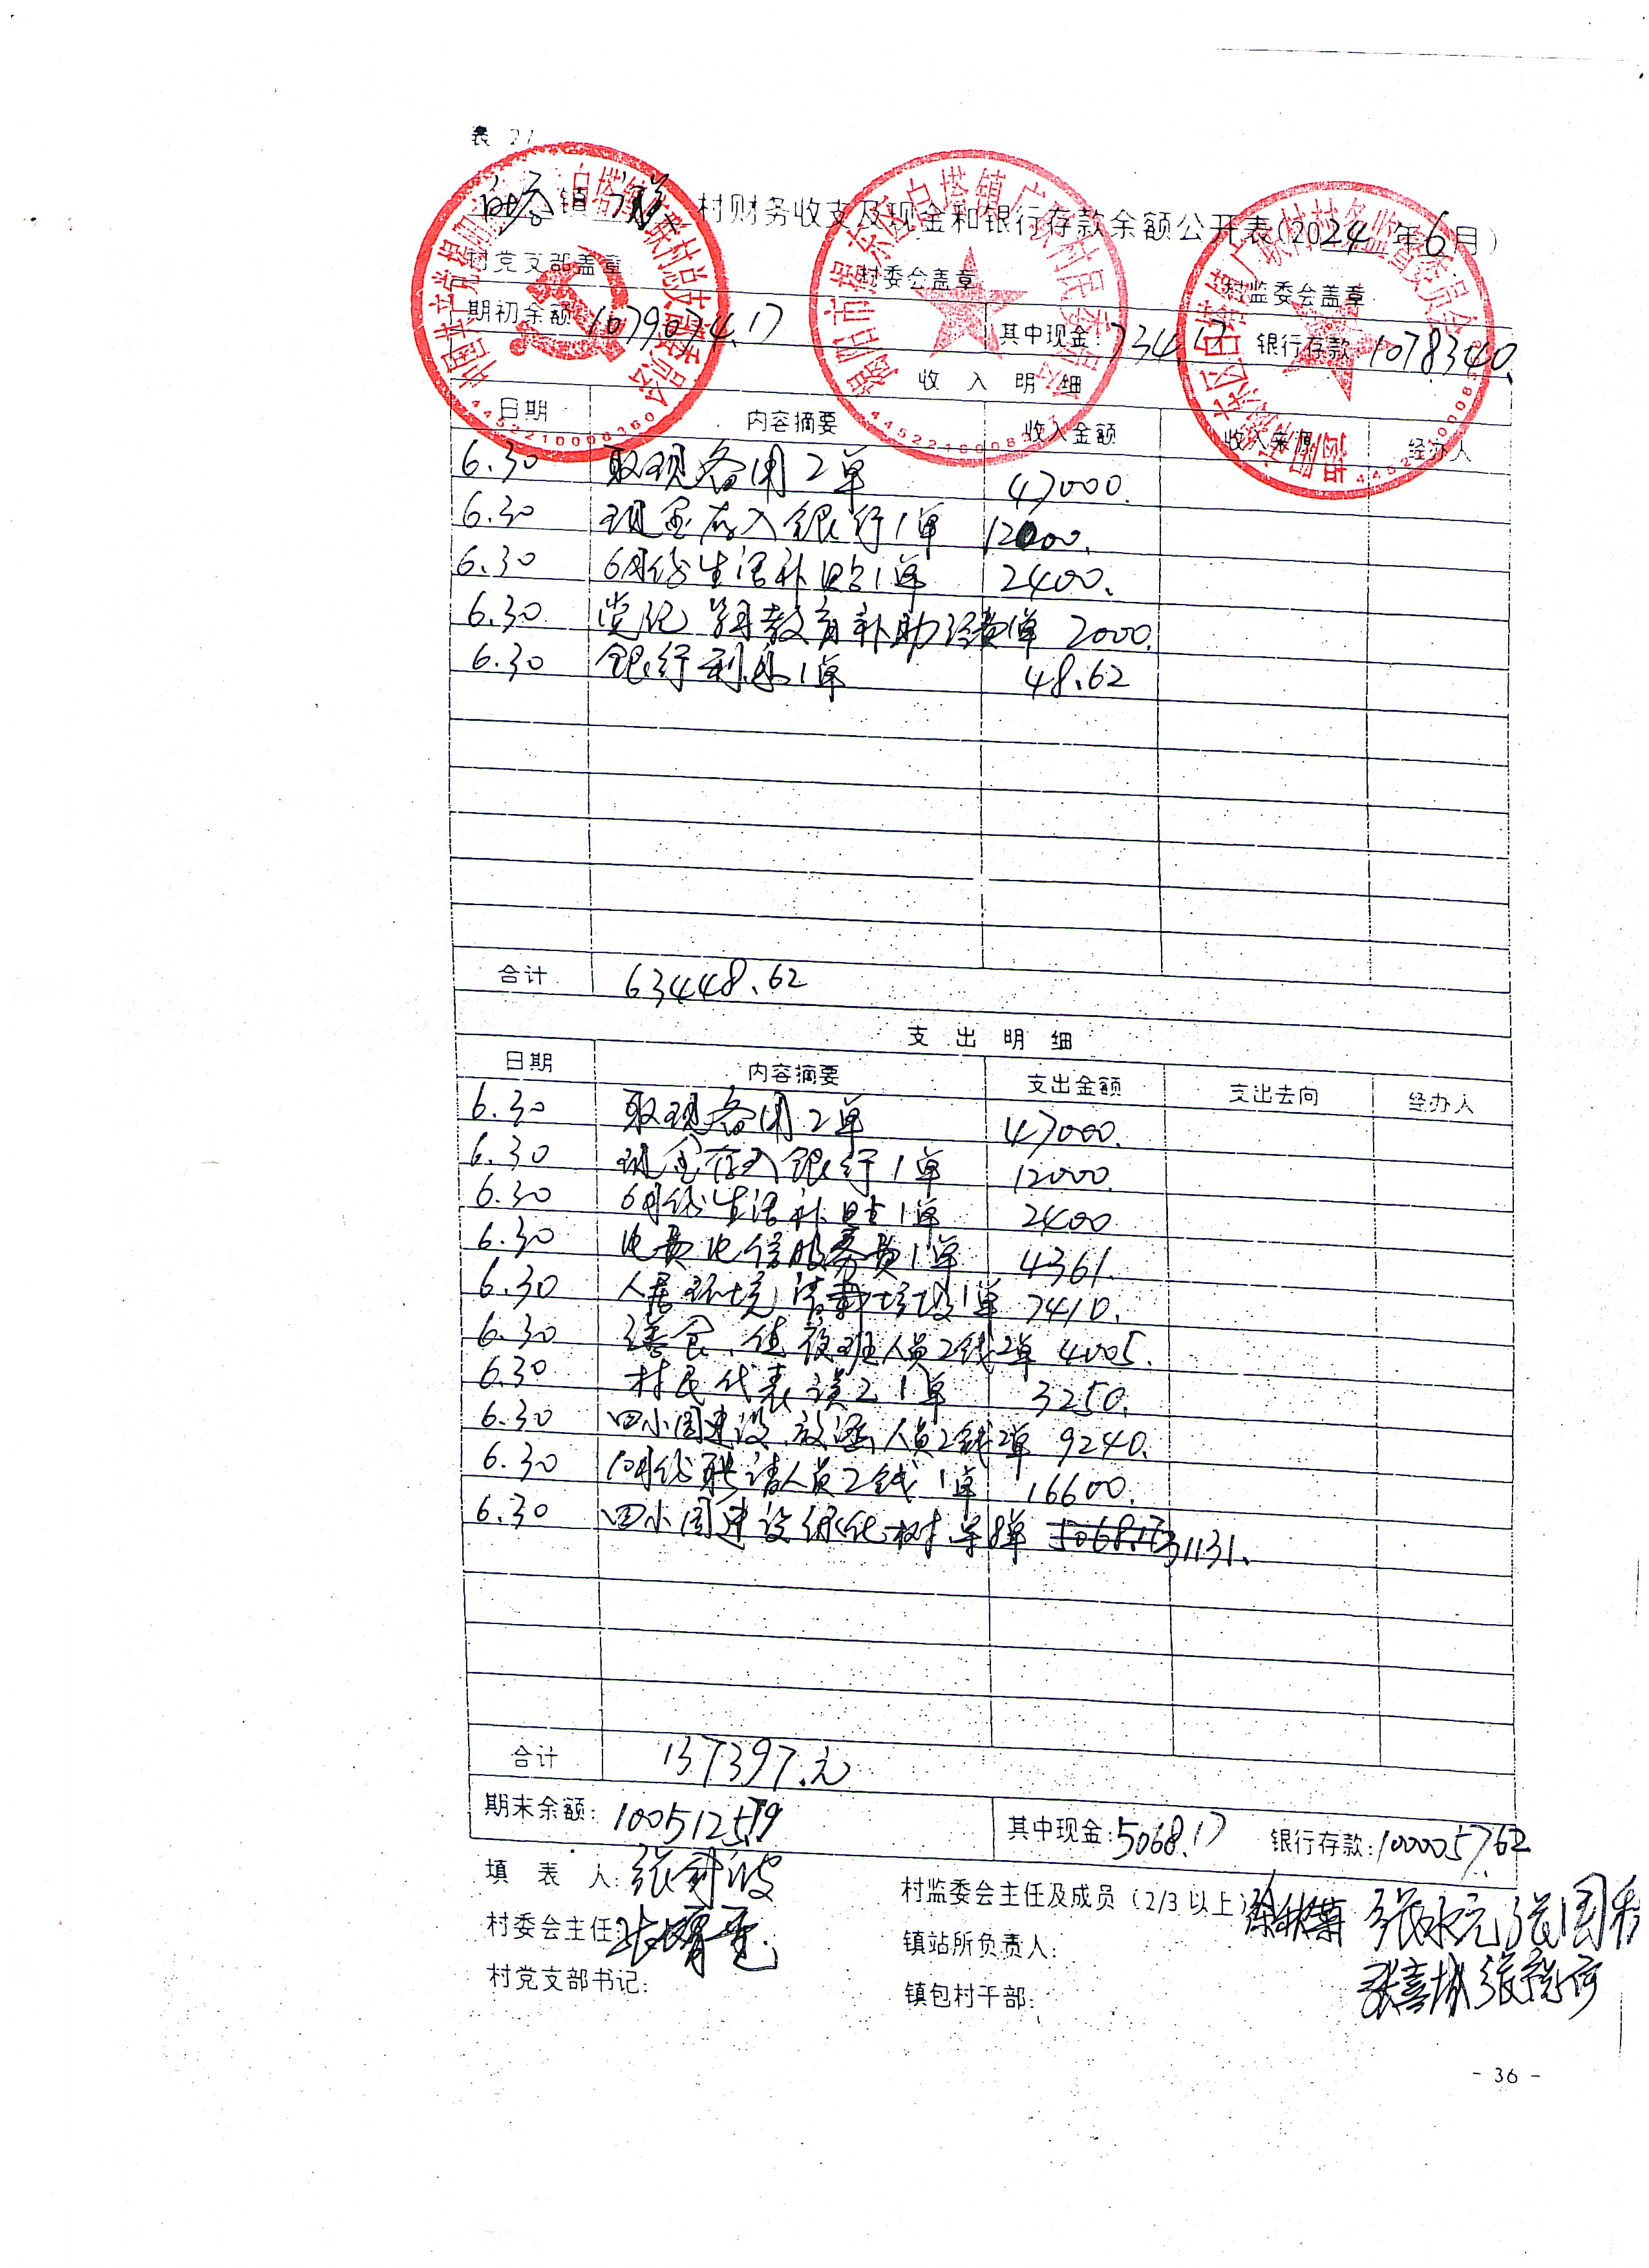 表 21
白塔镇广联村财务收支及现金和银行存款余额公开表(2024年6月)
村党支部盖章 村委会盖章 村监委会盖章
期初余额 1079074.17 其中现金: 734.17 银行存款: 1078340.
收 入 明 细
日期 内容摘要 收入金额 收入来源 经办人
6.30 取现备用2单 47000.
6.30 现金存入银行1单 12000.
6.30 6月份生活补贴1单 2400.
6.30 党纪学习教育补助经费1单 2000.
6.30 银行利息1单 48.62
合计 63448.62
支 出 明 细
日期 内容摘要 支出金额 支出去向 经办人
6.30 取现备用2单 47000.
6.30 现金存入银行1单 12000.
6.30 6月份生活补贴1单 2400
6.30 电费电信服务费1单 4361.
6.30 人居环境清载垃圾1单 7410.
6.30 膳食、值夜班人员工钱2单 4005.
6.30 村民代表误工1单 3250.
6.30 四小园建设、放涵人员工钱2单 9240.
6.30 6月份聘请人员工钱1单 16600.
6.30 四小园建设绿化树等8单 5068.17 31131.
合计 137397.元
期末余额: 1005125.79 其中现金: 5068.17 银行存款: 1000057.62
填 表 人:
村监委会主任及成员(2/3以上) 张永元
村委会主任:
镇站所负责人:
村党支部书记:
镇包村干部:
- 36 -
中国共产党揭阳 白塔镇广联村总支部委员会
4452210008360
揭阳市揭东区白塔镇广联村民委员会
揭阳市揭东区白塔镇广联村村务监督委员会